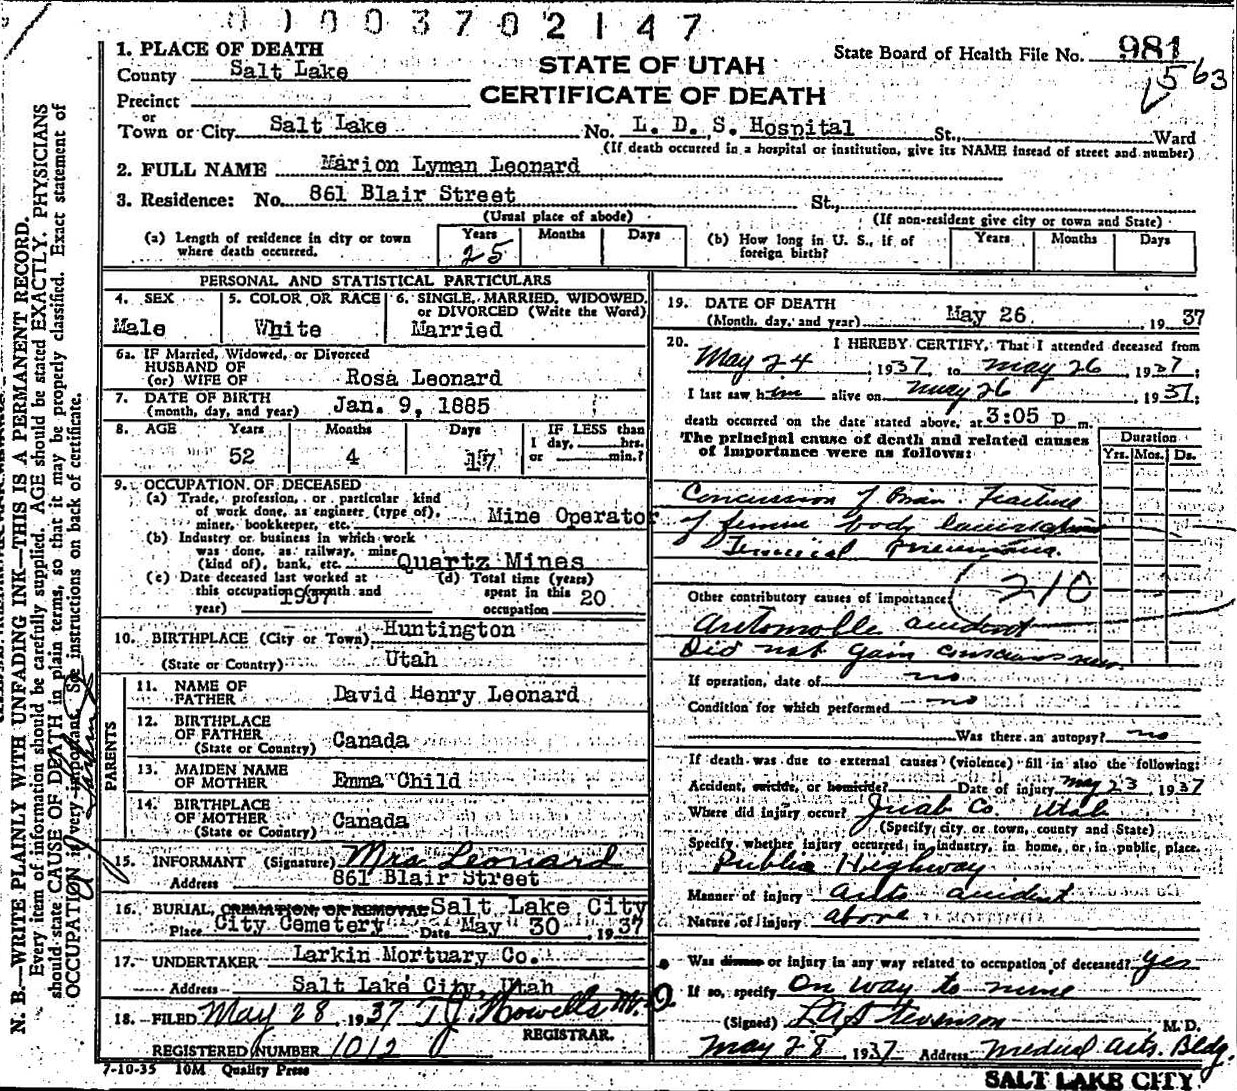 0003702147
1. PLACE OF DEATH
County Salt Lake
STATE OF UTAH
State Board of Health File No. 981
563
Precinct
CERTIFICATE OF DEATH
or
Town or City Salt Lake No. L. D. S. Hospital St., Ward
(If death occurred in a hospital or institution, give its NAME insead of street and number)
2. FULL NAME Marion Lyman Leonard
3. Residence: No. 861 Blair Street St.,
(Usual place of abode) (If non-resident give city or town and State)
(a) Length of residence in city or town where death occurred. Years 25 Months Days
(b) How long in U. S., if of foreign birth? Years Months Days
PERSONAL AND STATISTICAL PARTICULARS
4. SEX Male
5. COLOR OR RACE White
6. SINGLE, MARRIED, WIDOWED, or DIVORCED (Write the Word) Married
6a. IF Married, Widowed, or Divorced
HUSBAND OF
(or) WIFE OF Rosa Leonard
7. DATE OF BIRTH
(month, day, and year) Jan. 9, 1885
8. AGE Years 52 Months 4 Days 17 IF LESS than 1 day, hrs. or min.?
9. OCCUPATION OF DECEASED
(a) Trade, profession, or particular kind
of work done, as engineer (type of),
miner, bookkeeper, etc. Mine Operator
(b) Industry or business in which work
was done, as railway, mine
(kind of), bank, etc. Quartz Mines
(c) Date deceased last worked at
this occupation (month and
year) 1937
(d) Total time (years)
spent in this
occupation 20
10. BIRTHPLACE (City or Town) Huntington
(State or Country) Utah
PARENTS
11. NAME OF
FATHER David Henry Leonard
12. BIRTHPLACE
OF FATHER
(State or Country) Canada
13. MAIDEN NAME
OF MOTHER Emma Child
14. BIRTHPLACE
OF MOTHER
(State or Country) Canada
15. INFORMANT (Signature) Mrs Leonard
Address 861 Blair Street
16. BURIAL, CREMATION, OR REMOVAL Salt Lake City
Place City Cemetery Date May 30 1937
17. UNDERTAKER Larkin Mortuary Co.
Address Salt Lake City, Utah
18. FILED May 28 1937 T J Howells M.D.
REGISTRAR.
REGISTERED NUMBER 1012
7-10-35 10M Quality Press
19. DATE OF DEATH
(Month, day, and year) May 26 1937
20. I HEREBY CERTIFY, That I attended deceased from
May 24, 1937, to May 26, 1937;
I last saw him alive on May 26, 1937;
death occurred on the date stated above, at 3:05 p m.
The principal cause of death and related causes
of importance were as follows:
Duration
Yrs. Mos. Ds.
Concussion of Brain. Fracture
of femur body lacerations
Terminal Pneumonia.
210
Other contributory causes of importance:
Automobile accident
Did not gain consciousness
If operation, date of no
Condition for which performed no
Was there an autopsy? no
If death was due to external causes (violence) fill in also the following:
Accident, suicide, or homicide? Date of injury May 23, 1937
Where did injury occur? Juab Co. Utah
(Specify, city or town, county and State)
Specify whether injury occurred in industry, in home, or in public place.
Public Highway
Manner of injury auto accident
Nature of injury above
Was disease or injury in any way related to occupation of deceased? yes
If so, specify On way to mine
(Signed) L A Stevenson M. D.
May 28 1937 Address Medical Arts. Bldg.
SALT LAKE CITY
N. B.—WRITE PLAINLY WITH UNFADING INK—THIS IS A PERMANENT RECORD.
Every item of information should be carefully supplied. AGE should be stated EXACTLY. PHYSICIANS
should state CAUSE OF DEATH in plain terms, so that it may be properly classified. Exact statement of
OCCUPATION is very important. See instructions on back of certificate.